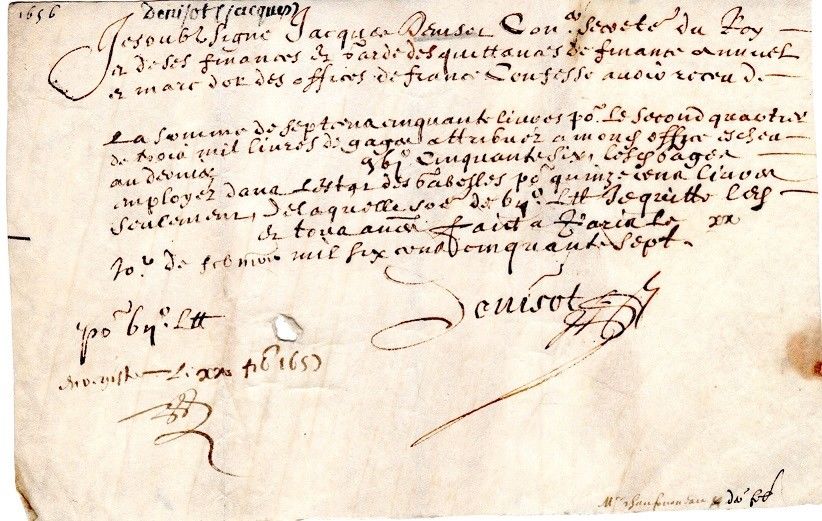 1656
Denisot (Jacques)
Je soubsigné Jacques Denisot Con.er Secret.re du Roy
et de ses finances et garde des quittances de finance annuel
et marc dor des offices de france Confesse avoir receu de
La somme de sept cens cinquante livres po.r Le second quartier
de trois mil livres de gages attribuez a mond office escheu
au dernier Cinquante six, lesd gages
employez dans Lestat des gabelles po.r quinze cens livres
seulement, de laquelle so.e de vijc L lt Je quitte led
et tous au.es faict a Paris Le xx
Jo.r de mil six cens cinquante sept.
Denisot
po.r vijc L lt
Le xx 1657